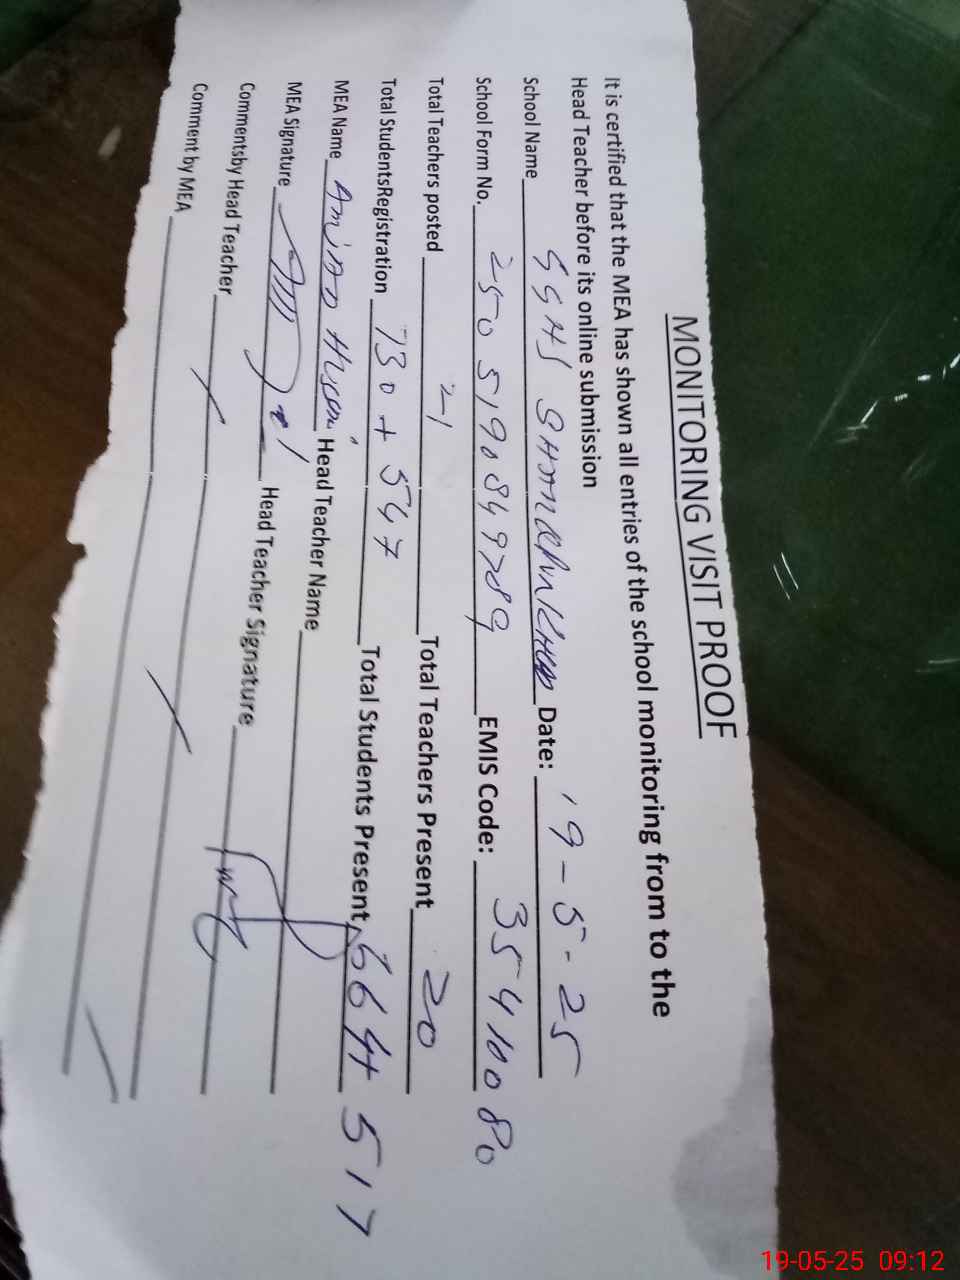 MONITORING VISIT PROOF
It is certified that the MEA has shown all entries of the school monitoring from to the
Head Teacher before its online submission
School Name GGHS Date: 19-5-25
School Form No. 2505190849789 EMIS Code: 35410080
Total Teachers posted 21 Total Teachers Present 20
Total StudentsRegistration 730 + 547 Total Students Present 664+ 517
MEA Name Head Teacher Name
MEA Signature Head Teacher Signature
Commentsby Head Teacher
Comment by MEA
19-05-25 09:12